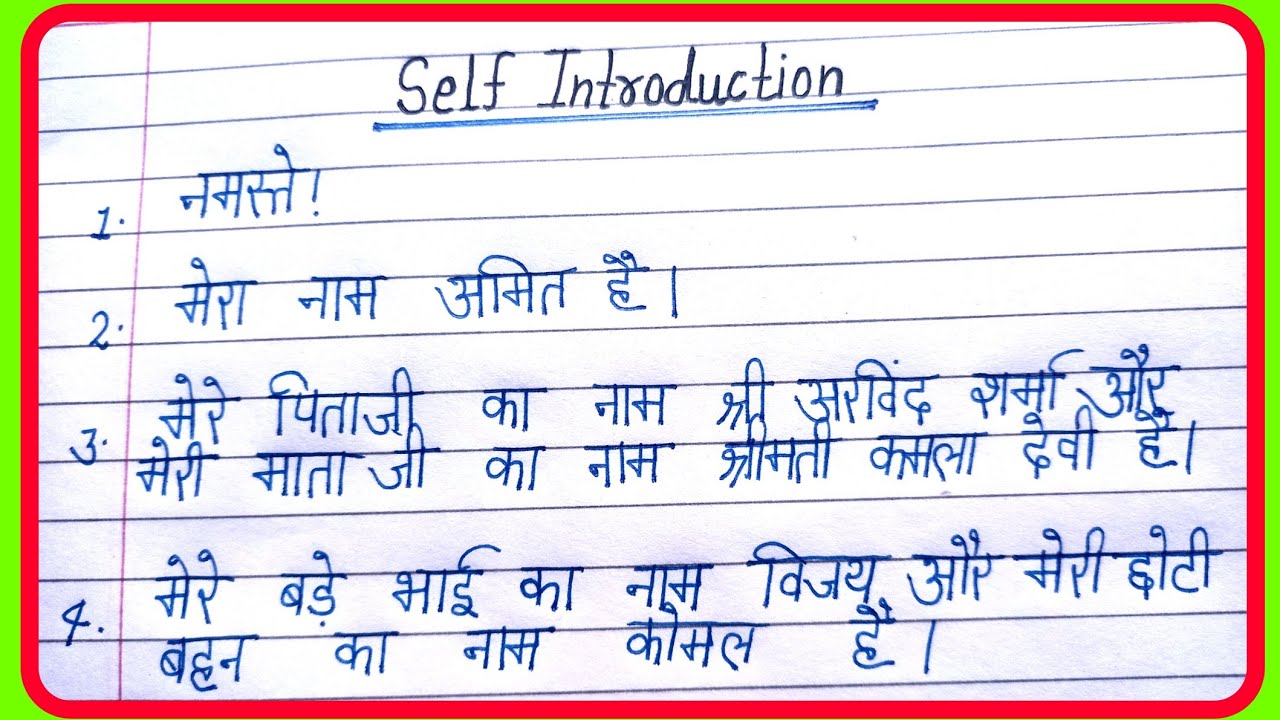 Self Introduction
1. नमस्ते!
2. मेरा नाम अमित है।
3. मेरे पिताजी का नाम श्री अरविंद शर्मा और
मेरी माता जी का नाम श्रीमती कमला देवी है।
4. मेरे बड़े भाई का नाम विजय और मेरी छोटी
बहन का नाम कोमल है।